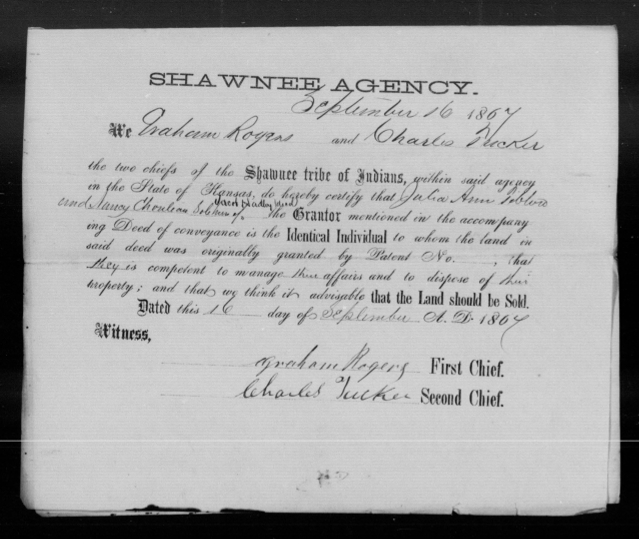 SHAWNEE AGENCY.
September 16 1867
We Graham Rogers and Charles Tucker
the two chiefs of the Shawnee tribe of Indians, within said agency
in the State of Kansas, do hereby certify that Julia Ann
and Nancy Chouteau of the Grantor mentioned in the accompany
ing Deed of conveyance is the Identical Individual to whom the land in
said deed was originally granted by Patent No. , that
they is competent to manage their affairs and to dispose of their
property; and that we think it advisable that the Land should be Sold.
Dated this 16 day of September A. D. 1867
Witness,
Graham Rogers First Chief.
Charles Tucker Second Chief.